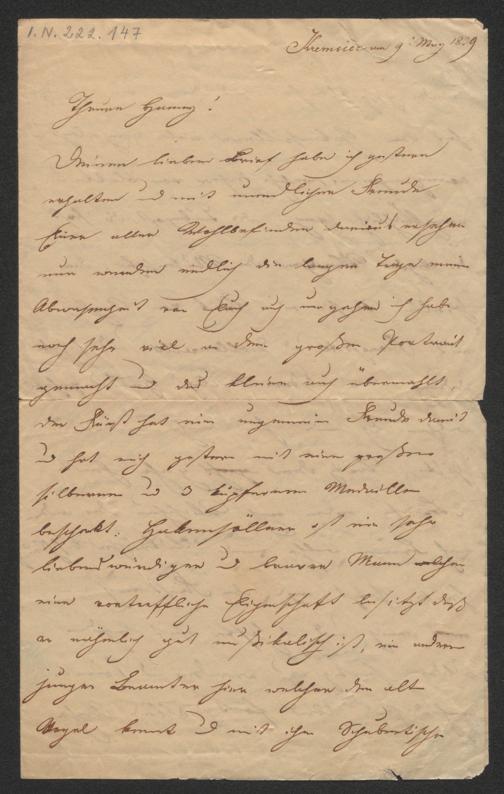 I.N. 222.147
Kremsier am 9t May 18 9
Theure Hanny!
Deinen lieben Brief habe ich gestern
erhalten u mit unendlicher Freude
Euer aller Wohlbefinden daraus ersehen
nun werden endlich die langen Tage mein
Abwesenheit von Euch ich habe
noch sehr viel an dem großen Portrait
gemacht u das kleine auch übermahlt,
der Fürst hat eine ungemeine Freude damit
u hat mich gestern mit einer großen
silbernen u 3 kupfernen Medaillen
beschenkt. ist ein sehr
liebenswürdiger u braver Mann welcher
eine vortreffliche Eigenschaft besitzt daß
er nähmlich gut musikalisch ist, ein anderer
junger Beamter hier welcher den alt
Vogel kennt u mit ihm Schubertische